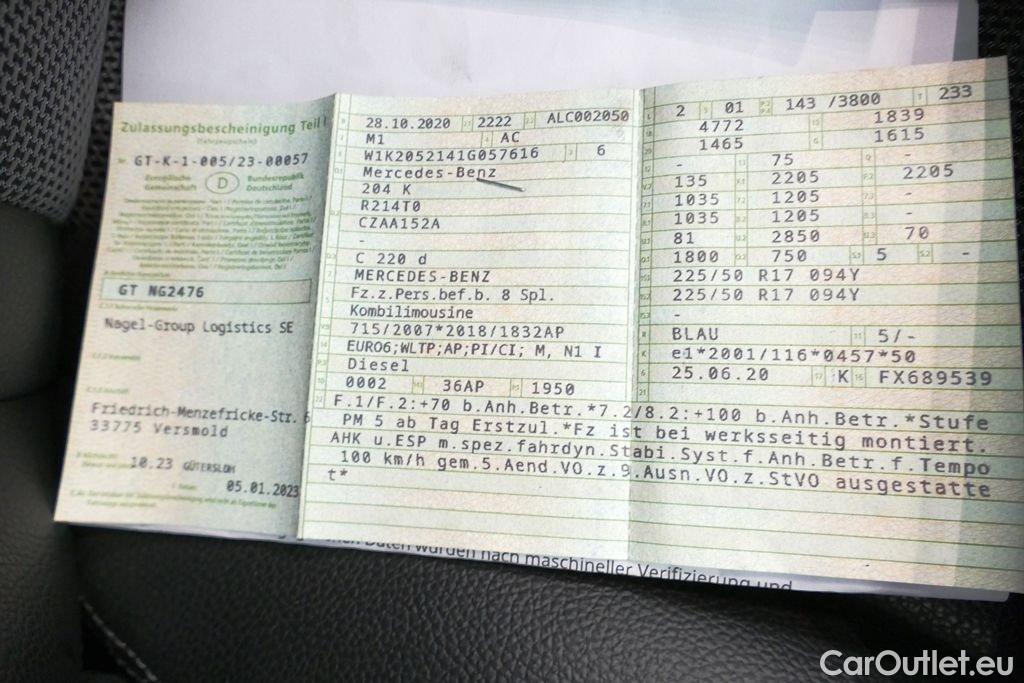 Zulassungsbescheinigung Teil I
(Fahrzeugschein)
Nr. GT-K-1-005/23-00057
Europäische Gemeinschaft D Bundesrepublik Deutschland
GT NG2476
Nagel-Group Logistics SE
Friedrich-Menzefricke-Str. 6
33775 Versmold
10.23 GÜTERSLOH
05.01.2023
28.10.2020 2222 ALC002050
M1 AC
W1K2052141G057616 6
Mercedes-Benz
204 K
R214T0
CZAA152A
-
C 220 d
MERCEDES-BENZ
Fz.z.Pers.bef.b. 8 Spl.
Kombilimousine
715/2007*2018/1832AP
EURO6;WLTP;AP;PI/CI; M, N1 I
Diesel
0002 36AP 1950
2 01 143 /3800 T 233
4772 1839
1465 1615
- 75 -
135 2205 2205
1035 1205 -
1035 1205 -
81 2850 70
1800 750 5 -
225/50 R17 094Y
225/50 R17 094Y
-
BLAU 5/-
e1*2001/116*0457*50
25.06.20 K FX689539
F.1/F.2:+70 b.Anh.Betr.*7.2/8.2:+100 b.Anh.Betr.*Stufe
PM 5 ab Tag Erstzul.*Fz ist bei werksseitig montiert.
AHK u.ESP m.spez.fahrdyn.Stabi.Syst.f.Anh.Betr.f.Tempo
100 km/h gem.5.Aend.VO.z.9.Ausn.VO.z.StVO ausgestatte
t*
Daten wurden nach maschineller Verifizierung und
CarOutlet.eu